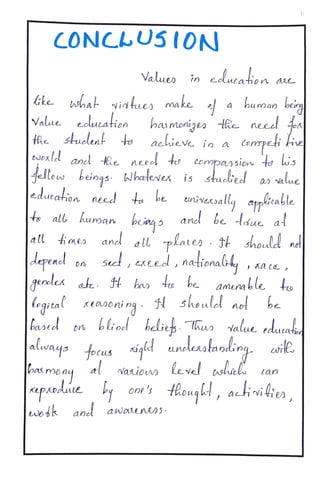 CONCLUSION
Values in education are
like what virtues make of a human being
Value education harmonizes the need for
the student to achieve in a competitive
world and the need to compassion to his
fellow beings. Whatever is studied as value
education need to be universally applicable
to all human beings and be true at
all times and all places. It should not
depend on sect, creed, nationality, race,
gender etc. It has to be amenable to
logical reasoning. It should not be
based on blind beliefs. Thus value education
always focus right understanding with
harmony at various level which can
reproduce by one's thought, activities,
work and awareness.